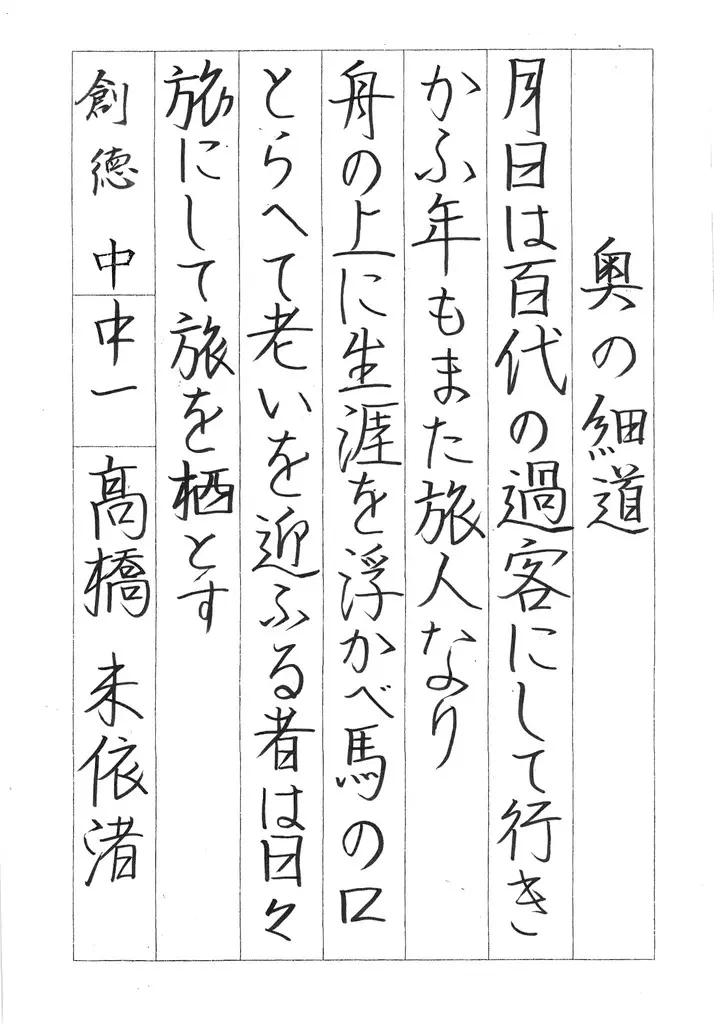 奥の細道
月日は百代の過客にして行き
かふ年もまた旅人なり
舟の上に生涯を浮かべ馬の口
とらへて老いを近ふる者は日々
旅にして旅を栖とす
創徳中
中一
髙橋未依渚